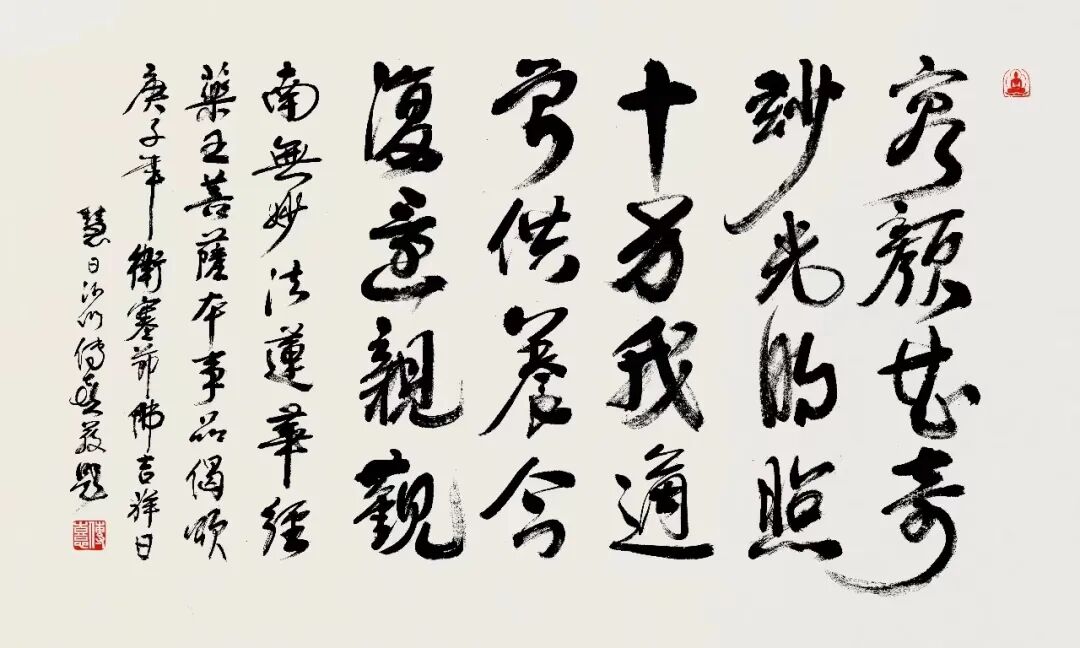 容顏甚奇
妙光明照
十方我適
曾供養今
復還親覲
南無妙法蓮華經
藥王菩薩本事品偈頌
庚子年衛塞節佛吉祥日
慧日沙門傳意敬題
傳意